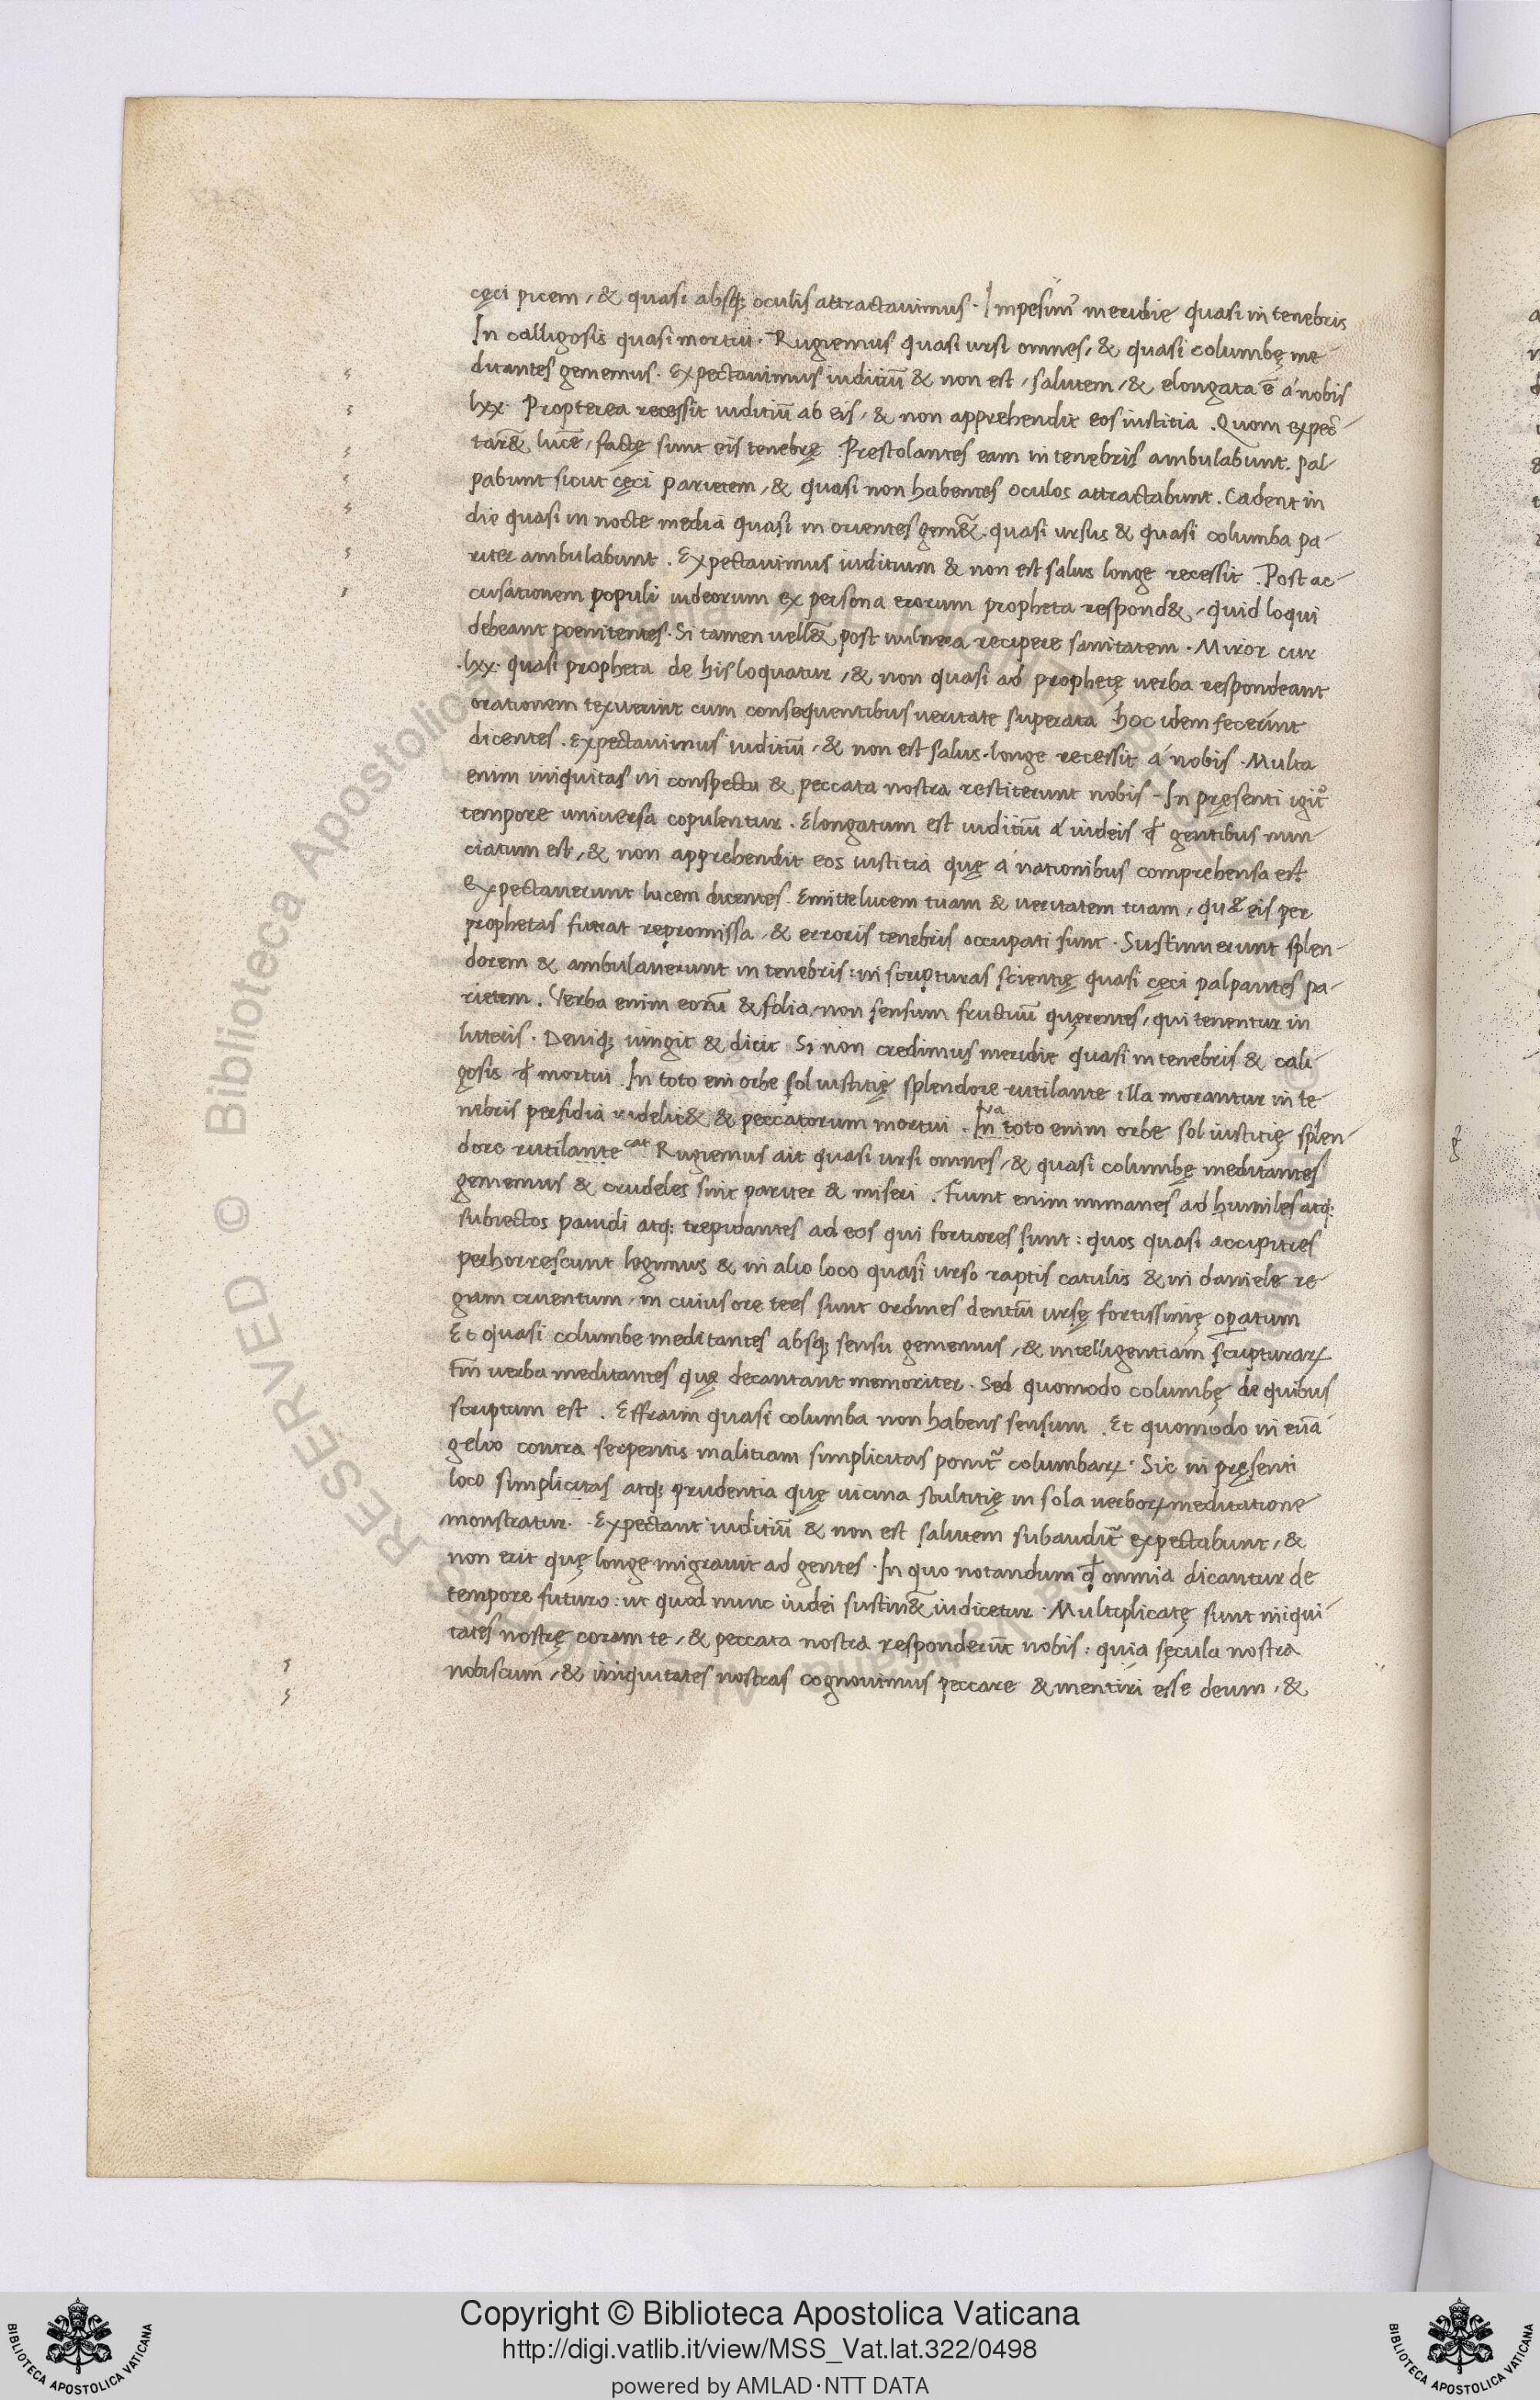 cęci picem, & quasi absq; oculis attractauimus. Impesim᷑ meridie quasi in tenebris
In calligosis quasi mortui. Rugiemus quasi ursi omnes, & quasi columbę me-
ditantes gememus. Expectauimus iuditiū & non est, salutem, & elongata ē á nobis
lxx. Propterea recessit iuditiū ab eis, & non apprehendit eos iustitia. Quom expec̄-
tar& lucē, factę sunt eis tenebrę. Prestolantes eam in tenebris ambulabunt. pal-
pabunt sicut cęci parietem, & quasi non habentes oculos attractabunt. Cadent in
die quasi in nocte media quasi in orientes gem&̄. quasi ursus & quasi columba pa-
riter ambulabunt. Expectauimus iuditium & non est salus longe recessit. Post ac-
cusationem populi iudeorum ex persona erorum propheta respond&, quid loqui
debeant poenitentes. Si tamen uell&̄ post uulnera recipere sanitatem. Miror cur
.lxx. quasi propheta de his loquatur, & non quasi ad prophetę uerba respondeant
orationem texuerint cum consequentibus ueritate superata hoc idem fecerint
dicentes. Expectauimus iuditiū, & non est salus. longe recessit á nobis. Multa
enim iniquitas in conspectu & peccata nostra restiterunt nobis - In pręsenti igit᷑
tempore uniuersa copulentur. Elongatum est iuditiū á iudeis ꝙ gentibus nun-
ciatum est, & non apprehendit eos iustitia quę á nationibus comprehensa est
Expectauerunt lucem dicentes. Emitte lucem tuam & ueritatem tuam, qu& eis per
prophetas fuerat repromissa, & erroris tenebris occupati sunt. Sustinuerunt splen-
dorem & ambulauerunt in tenebris: in scripturas scientię quasi cęci palpantes pa-
rietem. Verba enim eorū & folia, non sensum fructuū quęrentes, qui tenentur in
litteris. Deniq; iungit & dicit Si non credimus meridie quasi in tenebris & cali-
gosis ꝙ mortui. In toto eni orbe sol iustitię splendore rutilante illa morantur in te
nebris perfidia rudelit& & peccatorum mortui. In toto enim orbe sol iustitię splen-
va
dore rutilante cat Rugiemus ait quasi ursi omnes, & quasi columbę meditantes
gememus & crudeles sint pariter & miseri. Fiunt enim immanes ad humiles atq;
subiectos pauidi atq; trepidantes ad eos qui fortiores sunt: quos quasi accipitres
perhorrescunt legimus & in alio loco quasi urso raptis catulis & in daniele re-
gnm cruentum, in cuius ore tees sunt ordines dentiū ursę fortissimę op̲atum
Et quasi columbe meditantes absq; sensu gememus, & intelligentiam scripturaꝝ
tm̄ uerba meditantes quę decantant memoriter. Sed quomodo columbę de quibus
scriptum est. Effraim quasi columba non habens sensum. Et quomodo in euā-
gelio contra serpentis malitiam simplicitas ponit᷑ columbaꝝ. Sic in pręsenti
loco simplicitas atq; prudentia quę uicina stultitię in sola uerboꝝ meditatione
monstratur. Expectant iuditiū & non est salutem subaudit᷑ expectabunt, &
non erit quę longe migrauit ad gentes. In quo notandum ꝙ omnia dicantur de
tempore futuro: ut quod nunc iudei sustin&̄ iudicetur. Multiplicatę sunt iniqui-
tates nostrę coram te, & peccata nostra responderūt nobis: quia sęcula nostra
nobiscum, & iniquitates nostras cognouimus peccare & mentiri esse deum, &
Copyright © Biblioteca Apostolica Vaticana
http://digi.vatlib.it/view/MSS_Vat.lat.322/0498
powered by AMLAD·NTT DATA
BIBLIOTECA APOSTOLICA VATICANA
BIBLIOTECA APOSTOLICA VATICANA